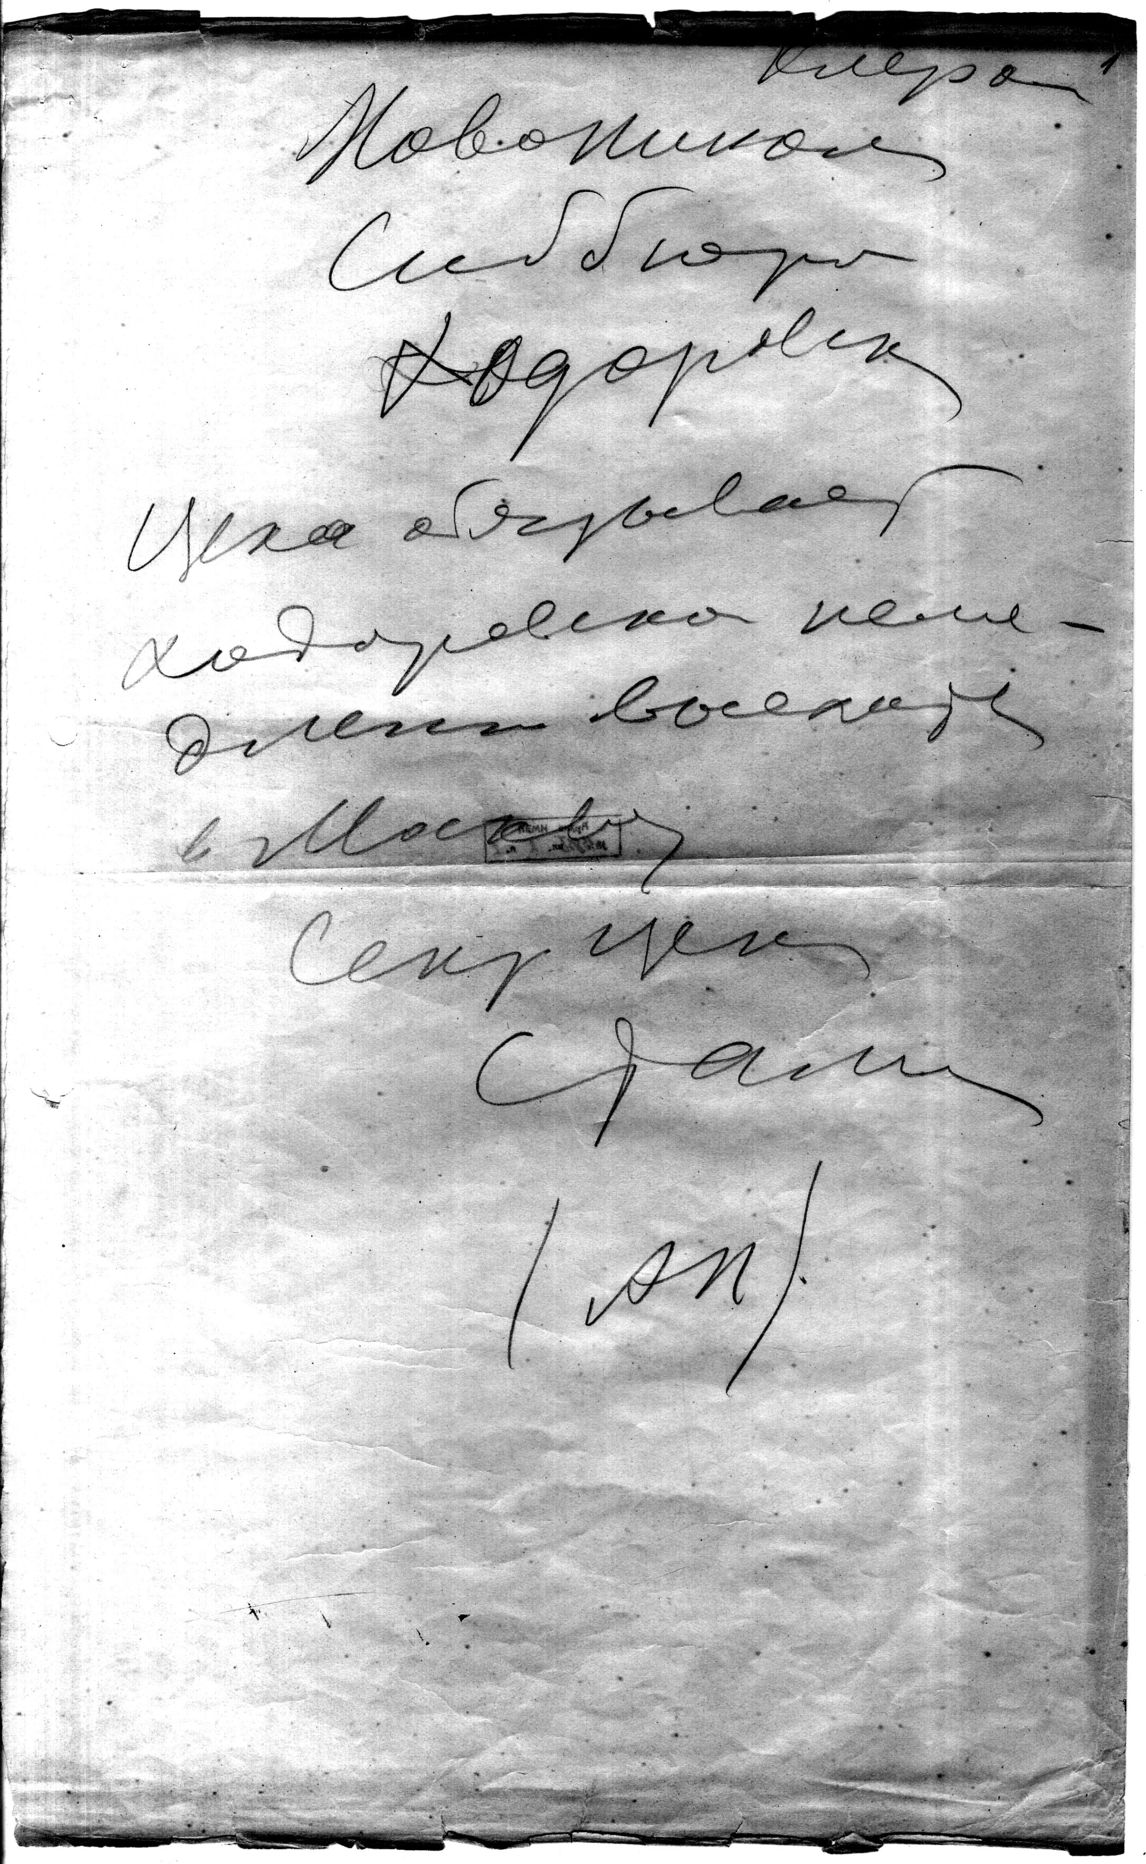 Шифром 1
Новоникол
Сиббюро
Ходоровск
Цека обязывает
Ходоровско неме-
дленн выехать
в Москву
Секр Цека
Сталин
(АП)